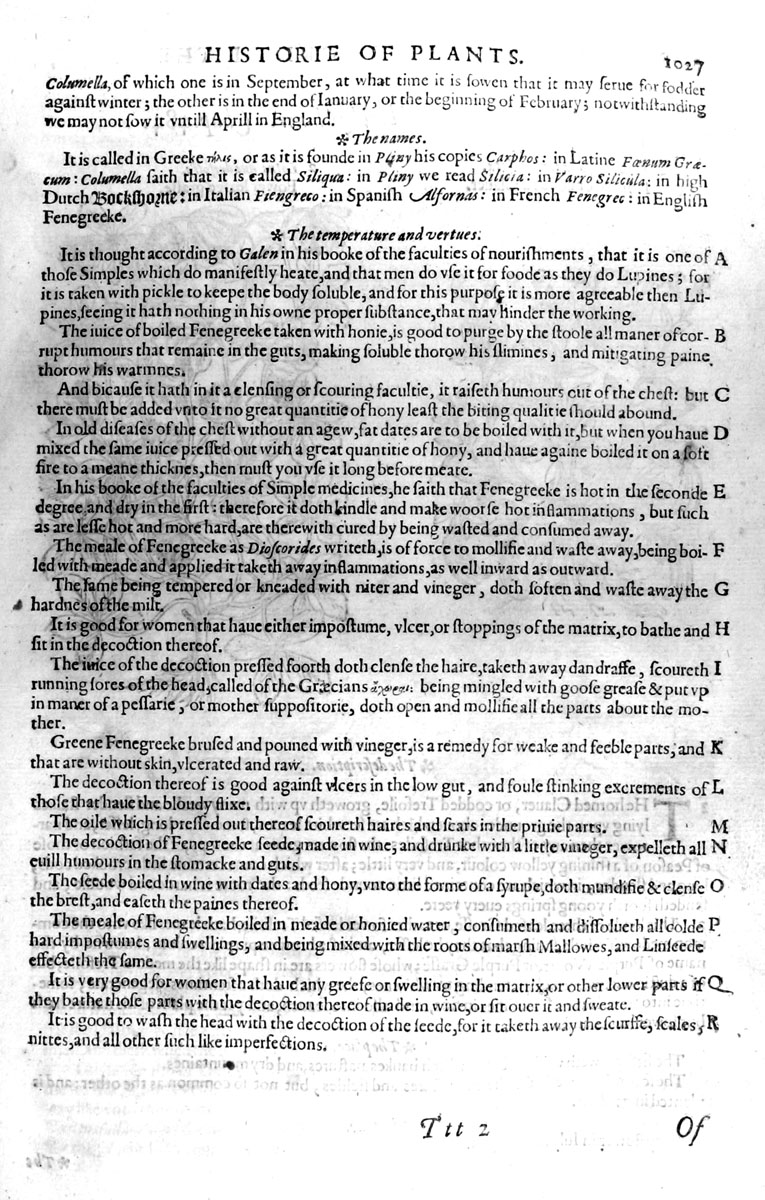 HISTORIE OF PLANTS. 1027
Columella, of which one is in September, at what time it is sowen that it may serue for fodder
againſt winter; the other is in the end of Ianuary, or the beginning of February; notwithſtanding
we may not ſow it vntill Aprill in England.
✻ The names.
It is called in Greeke τῆλις, or as it is founde in Pliny his copies Carphos: in Latine Fœnum Græ-
cum: Columella ſaith that it is called Siliqua: in Pliny we read Silicia: in Varro Silicula: in high
Dutch Bockſhorne: in Italian Fiengreco: in Spaniſh Alfornas: in French Fenegrec: in Engliſh
Fenegreeke.
✻ The temperature and vertues.
It is thought according to Galen in his booke of the faculties of nouriſhments, that it is one of A
thoſe Simples which do manifeſtly heate, and that men do vſe it for foode as they do Lupines; for
it is taken with pickle to keepe the body ſoluble, and for this purpoſe it is more agreeable then Lu-
pines, ſeeing it hath nothing in his owne proper ſubſtance, that may hinder the working.
The iuice of boiled Fenegreeke taken with honie, is good to purge by the ſtoole all maner of cor- B
rupt humours that remaine in the guts, making ſoluble thorow his ſlimines, and mitigating paine
thorow his warmnes.
And bicauſe it hath in it a clenſing or ſcouring facultie, it raiſeth humours out of the cheſt: but C
there muſt be added vnto it no great quantitie of hony leaſt the biting qualitie ſhould abound.
In old diſeaſes of the cheſt without an agew, fat dates are to be boiled with it, but when you haue D
mixed the ſame iuice preſſed out with a great quantitie of hony, and haue againe boiled it on a ſoft
fire to a meane thicknes, then muſt you vſe it long before meate.
In his booke of the faculties of Simple medicines, he ſaith that Fenegreeke is hot in the ſeconde E
degree, and dry in the firſt: therefore it doth kindle and make woorſe hot inflammations, but ſuch
as are leſſe hot and more hard, are therewith cured by being waſted and conſumed away.
The meale of Fenegreeke as Dioſcorides writeth, is of force to mollifie and waſte away, being boi- F
led with meade and applied it taketh away inflammations, as well inward as outward.
The ſame being tempered or kneaded with niter and vineger, doth ſoften and waſte away the G
hardnes of the milt.
It is good for women that haue either impoſtume, vlcer, or ſtoppings of the matrix, to bathe and H
ſit in the decoction thereof.
The iuice of the decoction preſſed foorth doth clenſe the haire, taketh away dandraffe, ſcoureth I
running ſores of the head, called of the Græcians being mingled with gooſe greaſe & put vp
in maner of a peſſarie, or mother ſuppoſitorie, doth open and mollifie all the parts about the mo-
ther.
Greene Fenegreeke bruſed and pouned with vineger, is a remedy for weake and feeble parts, and K
that are without skin, vlcerated and raw.
The decoction thereof is good againſt vlcers in the low gut, and foule ſtinking excrements of L
thoſe that haue the bloudy flixe.
The oile which is preſſed out thereof ſcoureth haires and ſcars in the priuie parts. M
The decoction of Fenegreeke ſeede, made in wine, and drunke with a little vineger, expelleth all N
euill humours in the ſtomacke and guts.
The ſeede boiled in wine with dates and hony, vnto the forme of a ſyrupe, doth mundifie & clenſe O
the breſt, and eaſeth the paines thereof.
The meale of Fenegreeke boiled in meade or honied water, conſumeth and diſſolueth all colde P
hard impoſtumes and ſwellings, and being mixed with the roots of marſh Mallowes, and Linſeede
effecteth the ſame.
It is very good for women that haue any greefe or ſwelling in the matrix, or other lower parts if Q
they bathe thoſe parts with the decoction thereof made in wine, or ſit ouer it and ſweate.
It is good to waſh the head with the decoction of the ſeede, for it taketh away the ſcurffe, ſcales, R
nittes, and all other ſuch like imperfections.
Ttt 2 Of